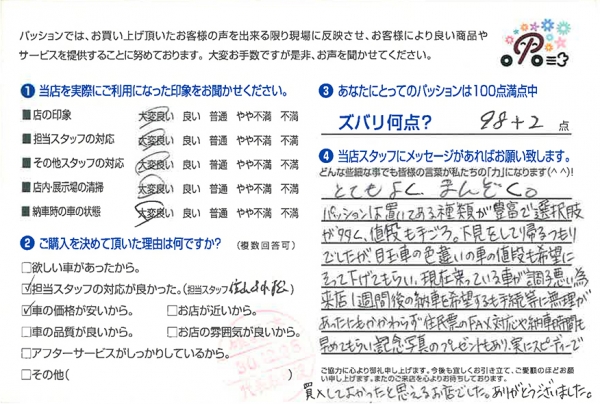 パッションでは、お買い上げ頂いたお客様の声を出来る限り現場に反映させ、お客様により良い商品や
サービスを提供することに努めております。大変お手数ですが是非、お声を聞かせてください。
❶ 当店を実際にご利用になった印象をお聞かせください。
■店の印象 大変良い 良い 普通 やや不満 不満
■担当スタッフの対応 大変良い 良い 普通 やや不満 不満
■その他スタッフの対応 大変良い 良い 普通 やや不満 不満
■店内・展示場の清掃 大変良い 良い 普通 やや不満 不満
■納車時の車の状態 大変良い 良い 普通 やや不満 不満
❷ ご購入を決めて頂いた理由は何ですか? (複数回答可)
□欲しい車があったから。
☑担当スタッフの対応が良かった。(担当スタッフ
☑車の価格が安いから。 □お店が近いから。
□車の品質が良いから。 □お店の雰囲気が良いから。
□アフターサービスがしっかりしているから。
□その他(
❸ あなたにとってのパッションは100点満点中
ズバリ何点? 98+2 点
❹ 当店スタッフにメッセージがあればお願い致します。
どんな些細な事でも皆様の言葉が私たちの「力」になります(^^)!
とてもよく、まんぞく。
パッションは置いてある種類が豊富で選択肢
が多く、値段も手ごろ。下見をして帰るつもり
でしたが目玉車の色違いの車の値段も希望に
そって下げてもらい、現在乗っている車が調子悪い為
来店1週間後の納車を希望するも手続等に無理が
あったにもかかわらず住民票のFAX対応や納車時間も
早めてもらい記念写真のプレゼントもあり実にスピーディーで
ご協力に心より御礼申し上げます。今後も宜しくお引き立て、ご愛顧のほどお
願い申し上げます。またのご来店を心よりお待ちしております。
買入してよかったと思えるお店でした。ありがとうございました。